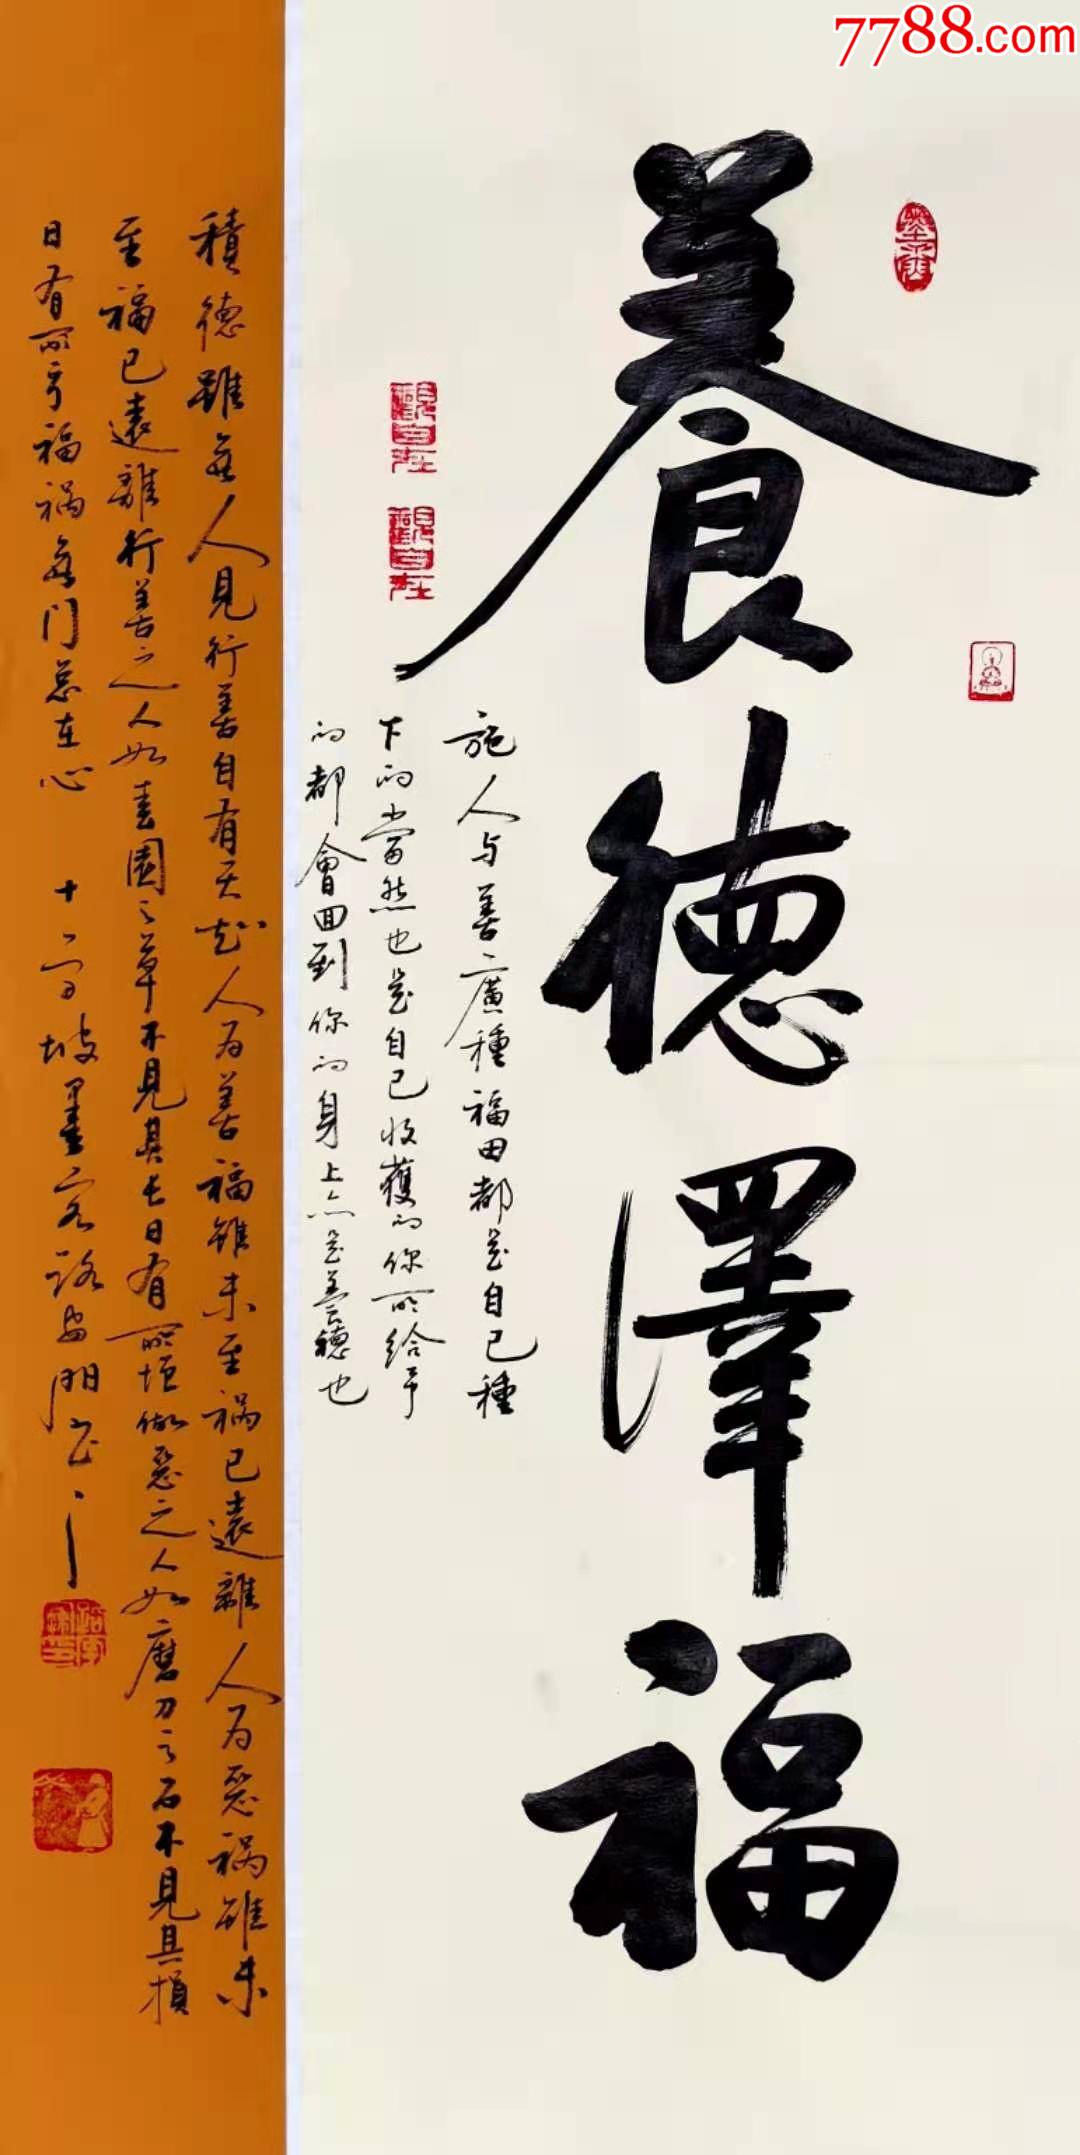 7788.com
養德澤福
觀自在
觀自在
施人与善廣種福田都是自己種
下的當然也是自己收獲的你所給予
的都會回到你的身上亦是善德也
積德雖無人見行善自有天知人为善福雖未至祸已遠離人为惡祸雖未
至福已遠離行善之人如春園之草不见其长日有所增做惡之人如磨刀之石不見其損
日有所亏福祸無门总在心